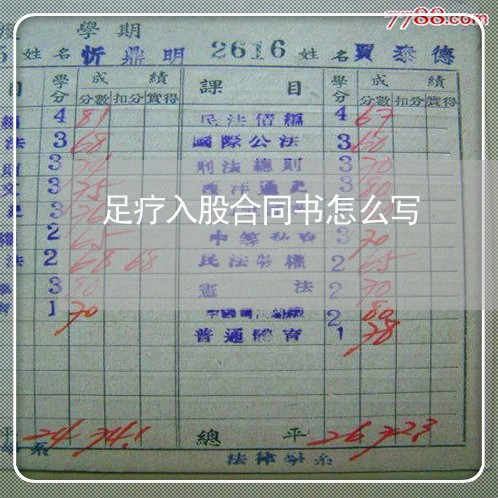 7788.com
度 學期
姓名 忻鼎明 2616 姓名 賈泰德
目 學分 成績 課目 學分 成績
分數 扣分 實得 分數 扣分 實得
4 81 民法債編 4 67
法 3 68 國際公法 3 60
3 刑法總則 3 70
3 75 西洋通史 3 80
足疗入股合同书怎么写
2 65 3 70
法 2 68 68 民法物權 2 65
3 80 憲法 2 70
1 70 2 80
普通體育 1 78
24 74.1 總平 26 72.3
系 法律學系